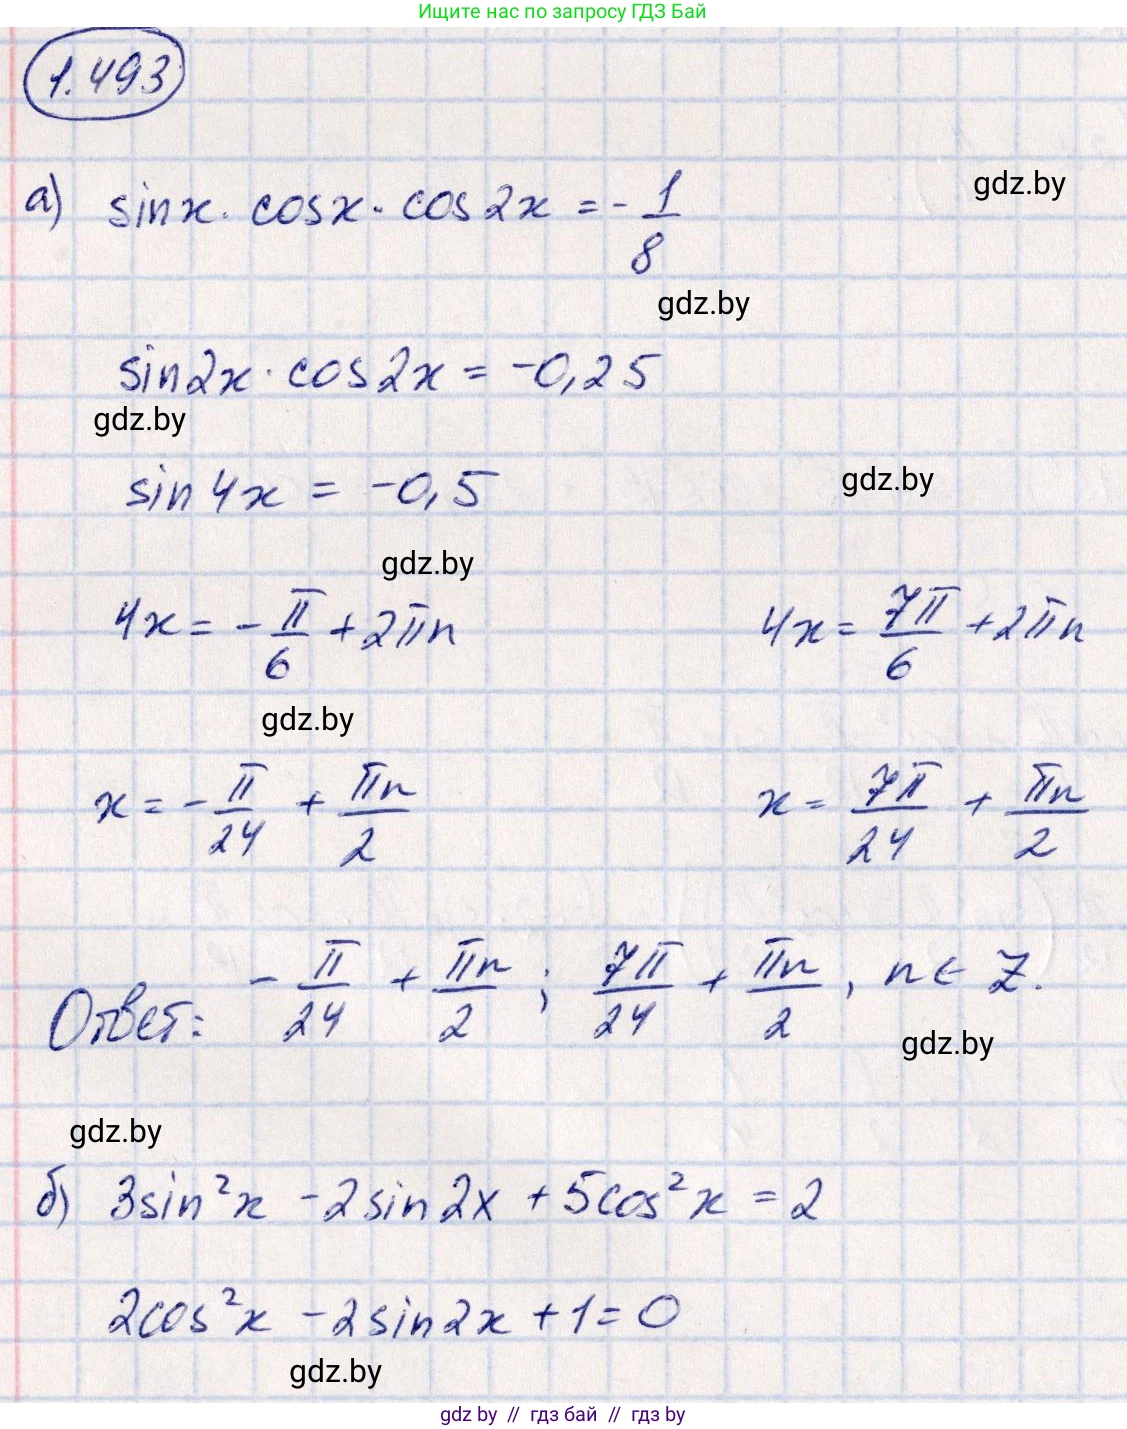 Ищите нас по запросу ГДЗ Бай
1.493
а) sinx · cosx · cos2x = -1/8
gdz.by
gdz.by
sin2x · cos2x = -0,25
gdz.by
sin4x = -0,5
gdz.by
gdz.by
4x = -π/6 + 2πn 4x = 7π/6 + 2πn
gdz.by
x = -π/24 + πn/2 x = 7π/24 + πn/2
Ответ: -π/24 + πn/2 ; 7π/24 + πn/2 , n ∈ Z.
gdz.by
gdz.by
б) 3sin²x - 2sin2x + 5cos²x = 2
2cos²x - 2sin2x + 1 = 0
gdz.by
gdz by // гдз бай // гдз by